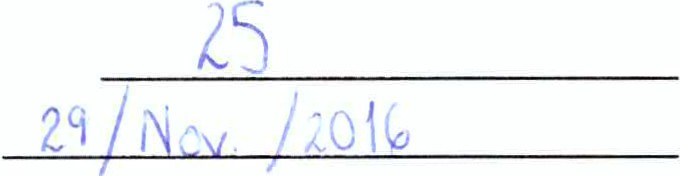 25
29/Nov./2016